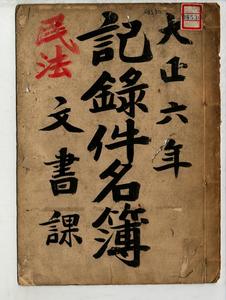 大正六年
記錄件名簿
文書課
民法